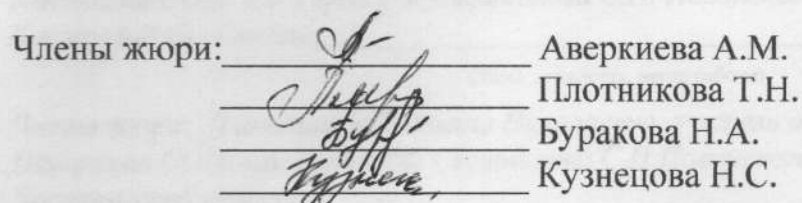 Члены жюри: Аверкиева А.М.
Плотникова Т.Н.
Буракова Н.А.
Кузнецова Н.С.